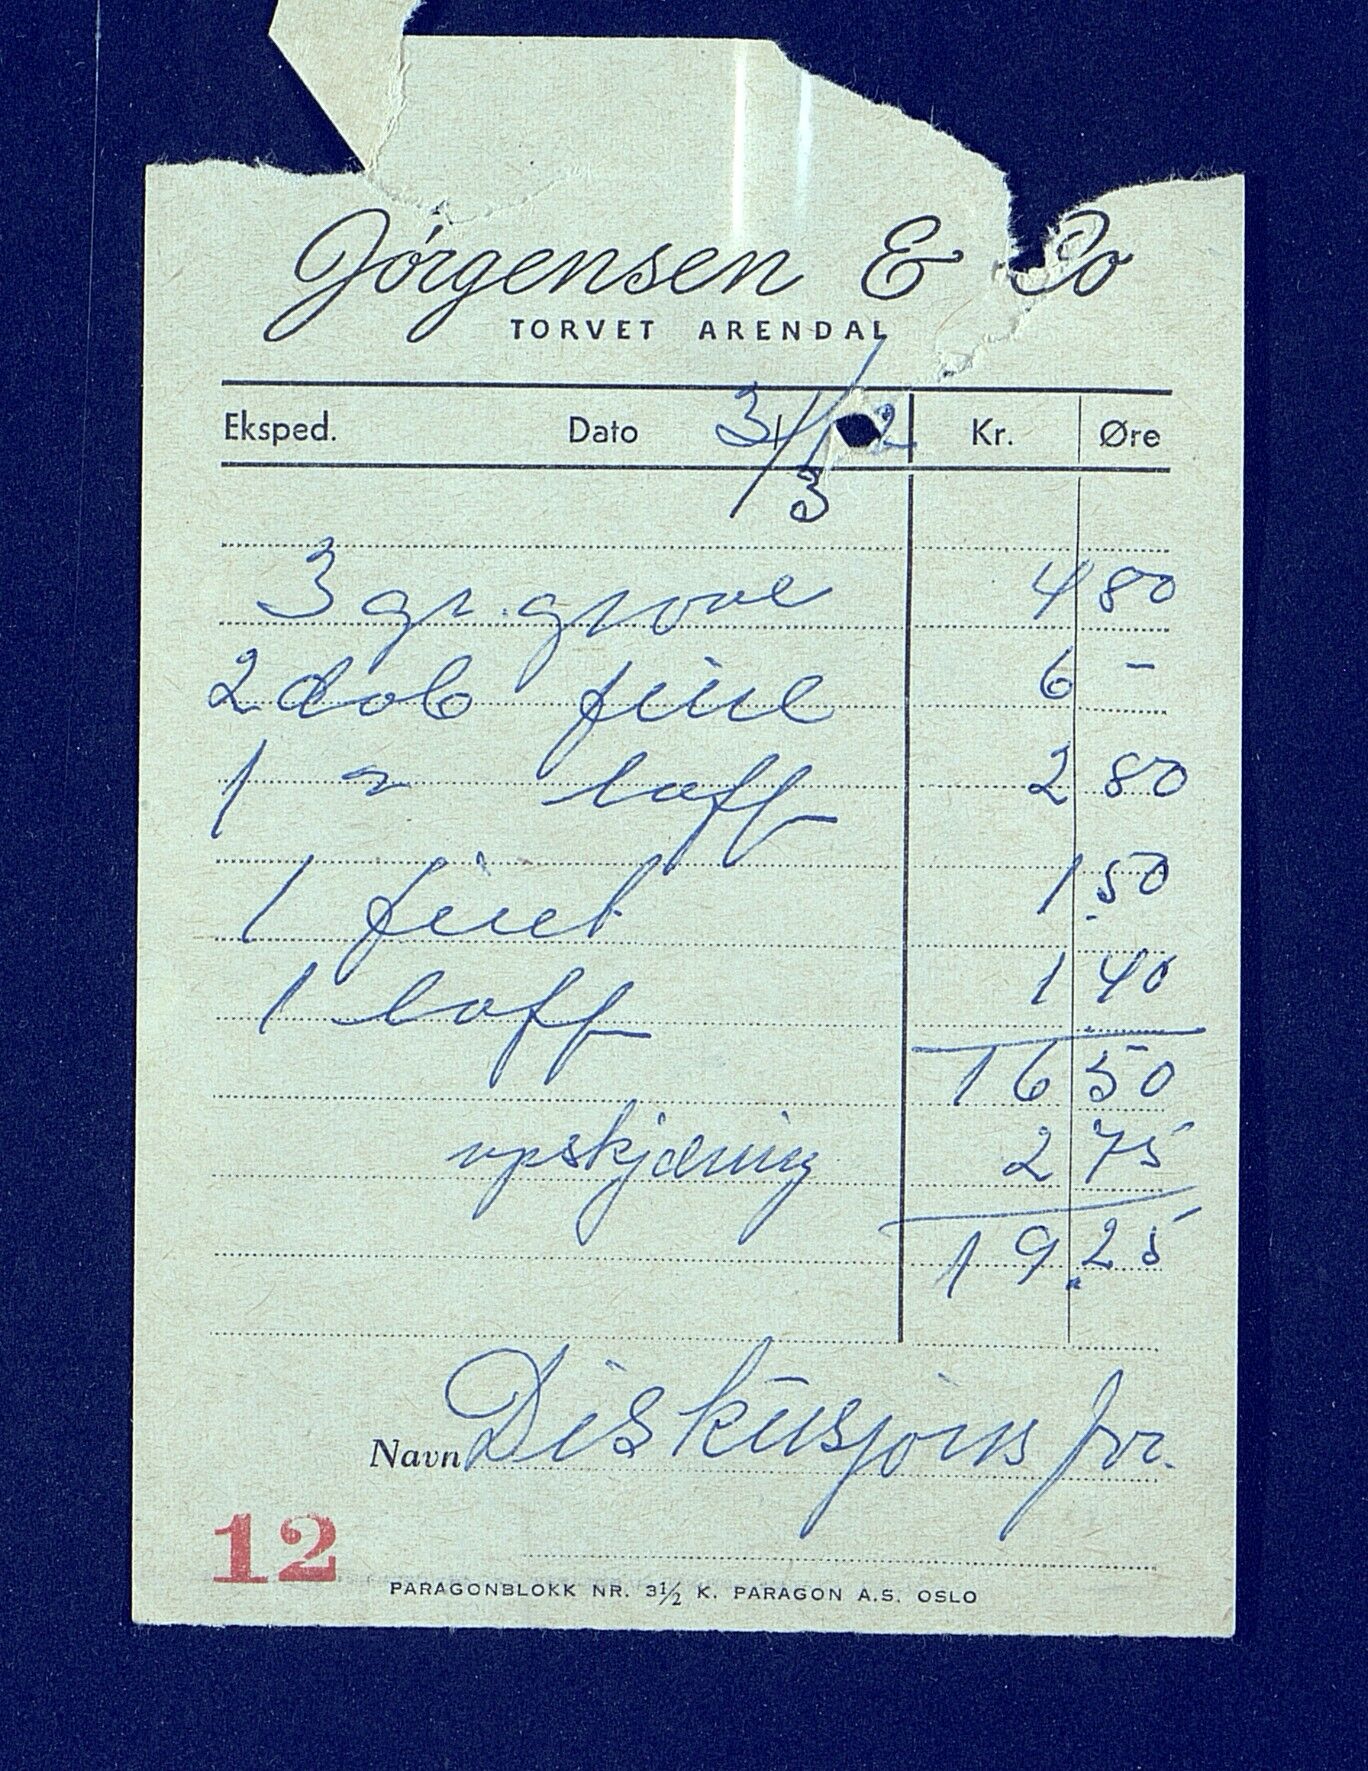 Jørgensen & Co
TORVET ARENDAL
Eksped. Dato 31/3 2 Kr. Øre
3 gr. grove 4 80
2 dob fine 6 -
1 " loff 2 80
1 fint 1 50
1 loff 1 40
16 50
upskjæring 2 75
19.25
Navn Diskusjons for.
12
PARAGONBLOKK NR. 3½ K. PARAGON A.S. OSLO